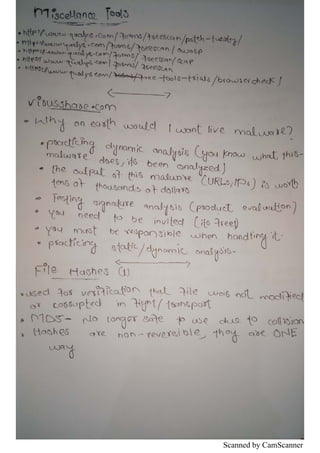 Miscellance Tools
• https://www.qualys.com/forms/freescan/patch-tuesday/
• https://www.qualys.com/forms/freescan/owasp
• https://www.qualys.com/forms/freescan/scap
• https://www.qualys.com/forms/freescan
• https://www.qualys.com/free-tools-trials/browsercheck/
virusshare.com
• Why on earth would I want live malware?
• practicing dynamic analysis (you know what this
malware does, its been analyzed)
• the output of this malware (URLs, IPs) is worth
tens of thousands of dollars
• Testing signature analysis (product evaluation)
• you need to be invited (its free)
• you must be responsible when handling it.
• practicing static/dynamic analysis.
File Hashes (1)
• used for verification that file was not modified
or corrupted in flight/transport
• MD5- No longer safe to use due to collision
• Hashes are non-reversible, they are ONE
way
Scanned by CamScanner